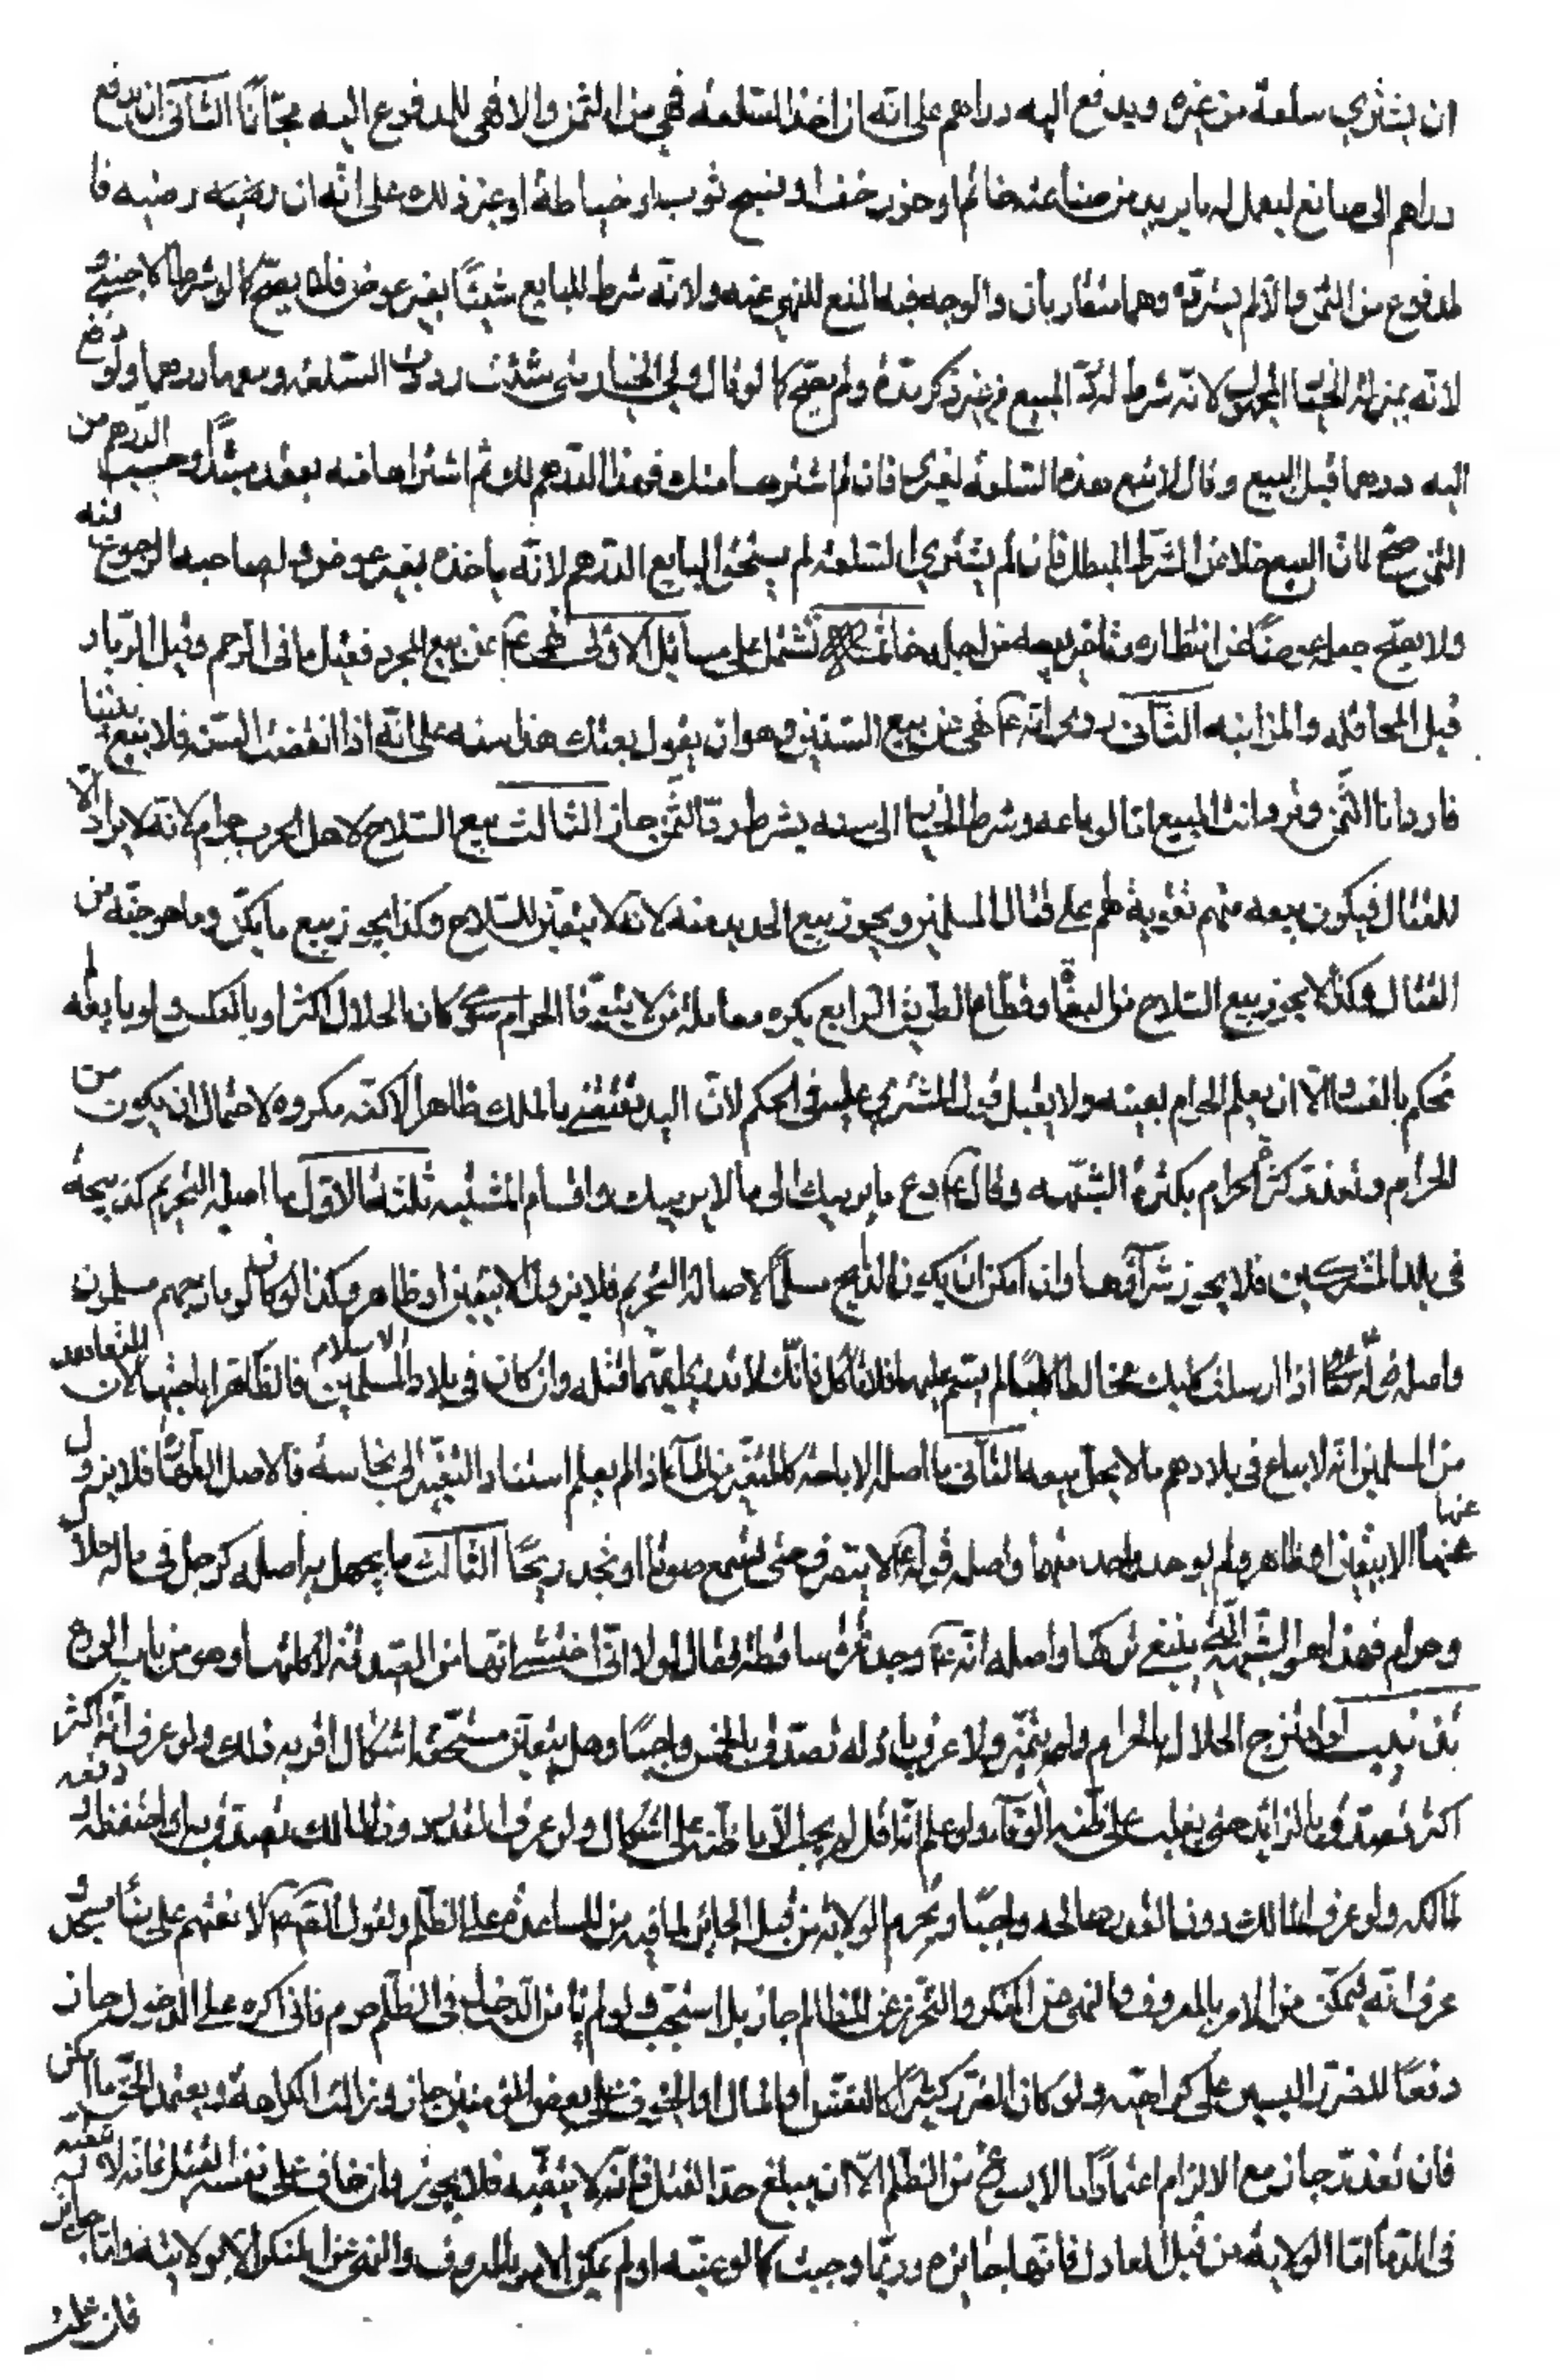 ان يشتري سلعة من غيره ويدفع اليه دراهم على انه ان اخذ السلعة فهي من الثمن والا فهي للمدفوع اليه مجّانا الثانى ان يدفع
دراهم الى صانع ليعمل له ما يريد من صناعته خاتم او خرز خف او نسج ثوب او خياطة او غير ذلك على انه ان رضيه فا
لمدفوع من الثمن والا لم يستردّه وهما متقاربان والوجه فيه المنع للنهى عنه ولانه شرط للبايع شيئًا بغير عوض فلا يصحّ كما لو شرط لاجنبي و
لانه بمنزلة الخيار المجهول لانه شرط له ردّ المبيع من غير ذكر مدّة ولم يصحّ كما لو قال ولى الخيار متى شئت رددت السلعة ومعها درهما ولو دفع
اليه درهما قبل البيع وقال لا تبع هذه السلعة لغيرى فان لم اشترها منك فهذا الدرهم لك ثم اشتراها منه بعقد مبتدأ وحسب الدرهم من
الثمن صحّ لانّ البيع خلا عن الشرط المبطل فان لم يشترى السلعة لم يستحق البايع الدرهم لانه ياخذه بغير عوض ولصاحبه الرجوع فيه
ولا يصحّ جعله عوضًا عن انتظاره وتاخر بيعه من اجله خاتمة تشتمل على مسائل الاولى نهى ع عن بيع المجر فقيل ما فى الرحم وقيل الربا و
قيل المحاقلة والمزابنة الثانى روى انه ع نهى عن بيع السنين وهو ان يقول بعتك هذا سنه على انه اذا انقضت السنة فلا بيع بيننا
فارد انا الثمن وترد انت المبيع اما لو باعه وشرط الخيار الى سنه بشرط ردّ الثمن جاز الثالث بيع السلاح لاهل الحرب حرام لانه لا يراد الّا
للقتال فيكون بيعه منهم تقوية لهم على قتال المسلمين ويجوز بيع الحديد منه لانه لا يتعين للسلاح وكذا يجوز بيع ما يكنّ وما هو جنّة من
القتال وكذا لا يجوز بيع السلاح من البغاة وقطاع الطريق الرابع يكره معاملة من لا يتوقا الحرام سواء كان الحلال اكثر او بالعكس ولو بايعه لم
نحكم بالفساد الّا ان يعلم الحرام بعينه ولا يقبل قول المشترى عليه فى الحكم لانّ اليد تقتضى بالملك ظاهرا لاكنّه مكروه لاحتمال ان يكون من
الحرام وتعدد كثرة الحرام بكثرة الشبهه وقال ع دع ما يريبك الى ما لا يريبك واقسام المشتبه ثلثة الاول ما اصله التحريم كذبيحة
فى بلد المشركين فلا يجوز شراؤها وان امكن ان يكون الذابح مسلمًا لاصالة التحريم فلا يزول الا بيقين او ظاهر وكذا لو كان لو بارحهم مسلمون
واصله قوله ع اذا ارسلت كلبك مخالط كلبًا لم يسم عليها فلا تاكل فانّك لا تدرى ايهما قتله وان كان فى بلاد الاسلام المسلمين فالظاهر اباحتها لان المتعارف
من المسلمين انه لا يباع فى بلادهم ما لا يحلّ بيعه الثانى ما اصله الاباحة كالمتغير من الماء اذا لم يعلم استناد التغيّر الى نجاسة فالاصل الطهارة فلا يزول
عنها الا بيقين او ظاهر ولم يوجد واحد منهما واصله قوله ع لا ينصرف حتى تسمع صوتا او تجد ريحًا الثالث ما يجهل به اصله كرجل فى ماله حلال
وحرام فهذا هو الشبهة التى ينبغى تركها واصله انه ع وجد تمرة ساقطة فقال لولا انى اخشى انها من الصدقة لاكلتها وهو من باب الورع
تذنيب لو امتزج الحلال بالحرام ولم يتميّز ولا عرف باذله تصدق بالخمس واجبًا وهل يتعيّن مستحقه اشكال اقربه ذلك ولو عرف انه اكثر
اكثر تصدّق بالزائد حتى يغلب على ظنه الوفاء ولو علم انه اقل لم يجب الّا ما ظنه على اشكال ولو عرف القدر دون المالك تصدق به او احتفظه و دفعه
لمالكه ولو عرف المالك دون القدر صالحه واجبًا وتحرم الولاية من قبل الجائر لما فيه من المساعدة على الظلم ولقول الصّ ع لا تعنهم على بناء مسجد ولو
عرف انه يتمكّن من الامر بالمعروف والنهى عن المنكر والتحرز عن المظالم جاز بل استحبّ ولو لم يامن الدخول فى الظلم حرم فان اكره على الدخول جاز
دفعًا للضرر اليسير على كراهته ولو كان الضرر كثيرًا كالنفس او المال او الخوف على بعض المؤمنين جاز وزالت الكراهة ويعتمد الحقّ ما امكن
فان تعذر جاز مع الالزام اعتماد ما لا يسوغ من الظلم الّا ان يبلغ حدّ القتل فانّه لا يتّقيه فلا يجوز وان خاف على نفسه القتل فانه لا تقية
فى الدماء امّا الولاية من قبل العادل فانها جائزه وربّما وجبت كما لو عيّنه او لم يمكن الامر بالمعروف والنهى عن المنكر الّا بولايته وامّا جائز
فان علمت